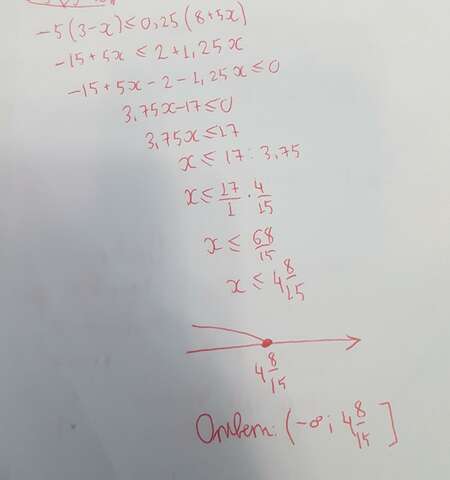 -5(3-x)≤0,25(8+5x)
-15+5x ≤ 2+1,25x
-15+5x-2-1,25x≤0
3,75x-17≤0
3,75x≤17
x ≤ 17 : 3,75
x ≤ 17/1 · 4/15
x ≤ 68/15
x ≤ 4 8/15
4 8/15
Ответ: (-∞; 4 8/15]